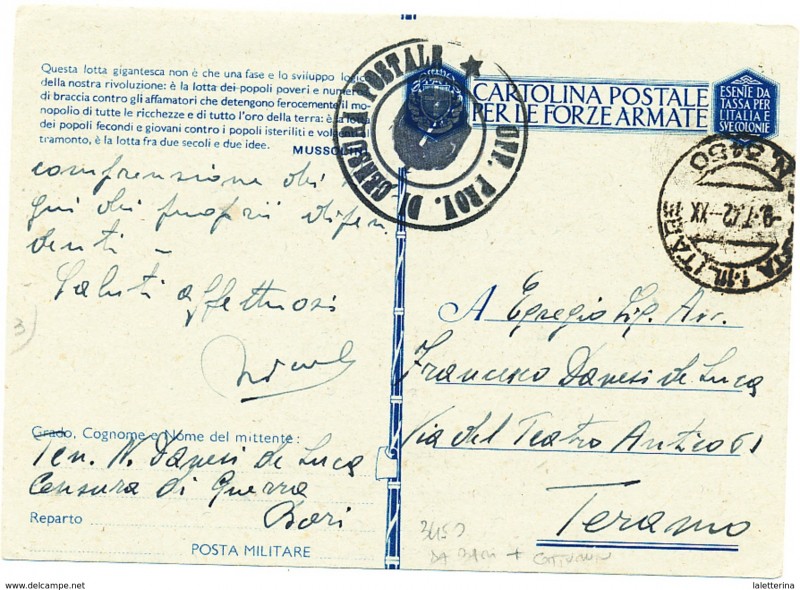 Questa lotta gigantesca non è che una fase e lo sviluppo logico
della nostra rivoluzione: è la lotta dei popoli poveri e numerosi
di braccia contro gli affamatori che detengono ferocemente il mo-
nopolio di tutte le ricchezze e di tutto l'oro della terra: è la lotta
dei popoli fecondi e giovani contro i popoli isteriliti e volgenti al
tramonto, è la lotta fra due secoli e due idee.
MUSSOLINI
comprensione dei
qui dei proprii difen
denti -
Saluti affettuosi
Grado, Cognome e Nome del mittente:
Ten. N. Danesi de Luca
Censura di Guerra
Bari
Reparto
POSTA MILITARE
UFF. PROV. DI CENSURA POSTALE ★
CARTOLINA POSTALE
PER LE FORZE ARMATE
ESENTE DA
TASSA PER
L'ITALIA E
SVE COLONIE
POSTA MILITARE
N. 3450
42 XX
A Egregio Sig. Avv.
Francesco Danesi de Luca
Via del Teatro Antico 61
Teramo
3450
DA BARI +
3)
www.delcampe.net
laletterina